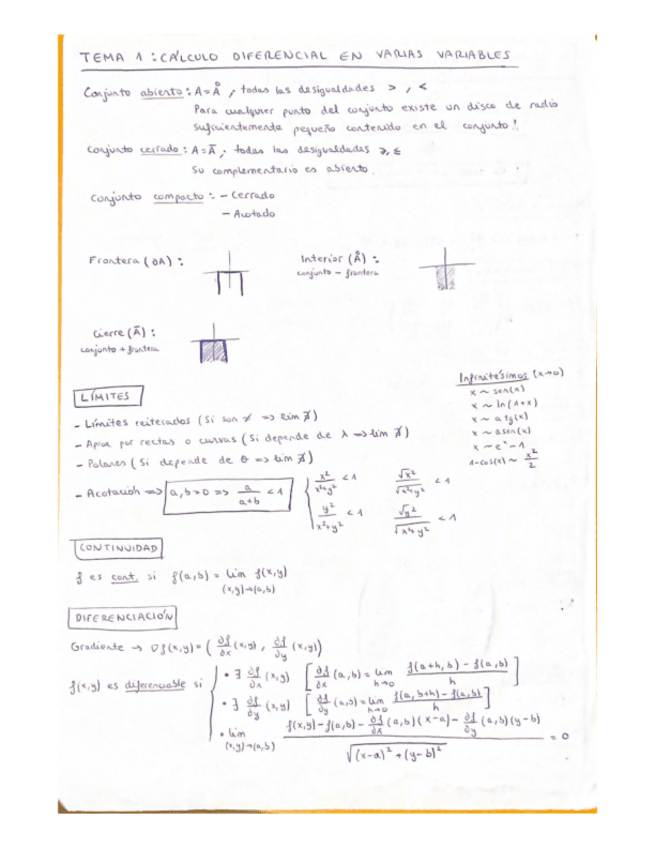 TEMA 1 : CÁLCULO DIFERENCIAL EN VARIAS VARIABLES
Conjunto abierto : A = Å , todas las desigualdades > , <
Para cualquier punto del conjunto existe un disco de radio
suficientemente pequeño contenido en el conjunto!
Conjunto cerrado : A = Ā , todas las desigualdades ≥, ≤
Su complementario es abierto.
Conjunto compacto : - Cerrado
- Acotado
Frontera (∂A) :
Interior (Å) :
conjunto - frontera
Cierre (Ā) :
conjunto + frontera
Infinitésimos (x→0)
x ~ sen(x)
x ~ ln(1+x)
x ~ atg(x)
x ~ asen(x)
x ~ e^x - 1
1-cos(x) ~ x²/2
LÍMITES
- Límites reiterados (Si son ≠ => lim ∄)
- Aprox por rectas o curvas (Si depende de λ => lim ∄)
- Polares (Si depende de θ => lim ∄)
- Acotación => a,b>0 => a/(a+b) < 1
x²/(x²+y²) < 1 √x²/√(x²+y²) < 1
y²/(x²+y²) < 1 √y²/√(x²+y²) < 1
CONTINUIDAD
f es cont. si f(a,b) = lim f(x,y)
(x,y)→(a,b)
DIFERENCIACIÓN
Gradiente → ∇f(x,y) = ( ∂f/∂x (x,y) , ∂f/∂y (x,y))
f(x,y) es diferenciable si
• ∃ ∂f/∂x (x,y) [ ∂f/∂x (a,b) = lim h→0 (f(a+h,b) - f(a,b))/h ]
• ∃ ∂f/∂y (x,y) [ ∂f/∂y (a,b) = lim h→0 (f(a,b+h) - f(a,b))/h ]
• lim (x,y)→(a,b) (f(x,y) - f(a,b) - ∂f/∂x (a,b)(x-a) - ∂f/∂y (a,b)(y-b))/√((x-a)² + (y-b)²) = 0